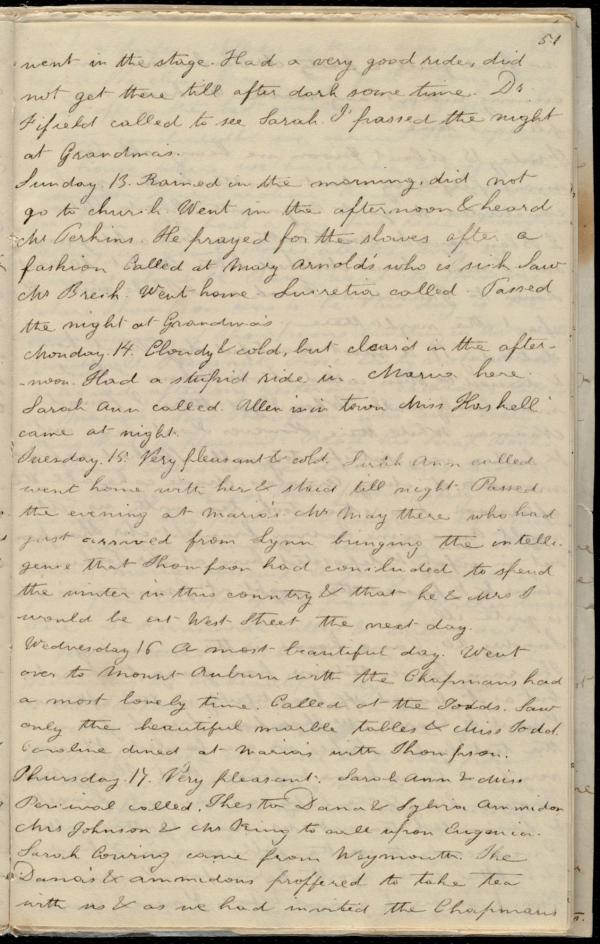 51
went in the stage. Had a very good ride, did
not get there till after dark some time. Dr.
Fifield called to see Sarah. I passed the night
at Grandma's.
Sunday 13. Rained in the morning, did not
go to church. Went in the afternoon & heard
Mr Perkins. He prayed for the slaves after a
fashion Called at Mary Arnold's who is sick Saw
Mr Breck. Went home Lucretia called. Passed
the night at Grandma's
Monday. 14. Cloudy & cold, but clear'd in the after-
-noon. Had a stupid ride in. Maria here.
Sarah Ann called. Allen is in town Miss Haskell
came at night.
Tuesday. 15. Very pleasant & cold. Sarah Ann called
went home with her & staid till night. Passed
the evening at Maria's Mr May there who had
just arrived from Lynn bringing the intelli-
gence that Thompson had concluded to spend
the winter in this country & that he & Mrs T
would be at West Street the next day.
Wednesday 16 A most beautiful day. Went
over to Mount Auburn with the Chapmans had
a most lovely time. Called at the Todds. Saw
only the beautiful marble tables & Miss Todd.
Caroline dined at Maria's with Thompson.
Thursday. 17. Very pleasant. Sarah Ann & Miss
Percival called, Dana & Sylvia Ammidon
Mrs Johnson & Mr King to call upon Eugenia.
Sarah Cowing came from Weymouth. The
Dana's & Ammidons proffered to take tea
with us & as we had invited the Chapmans